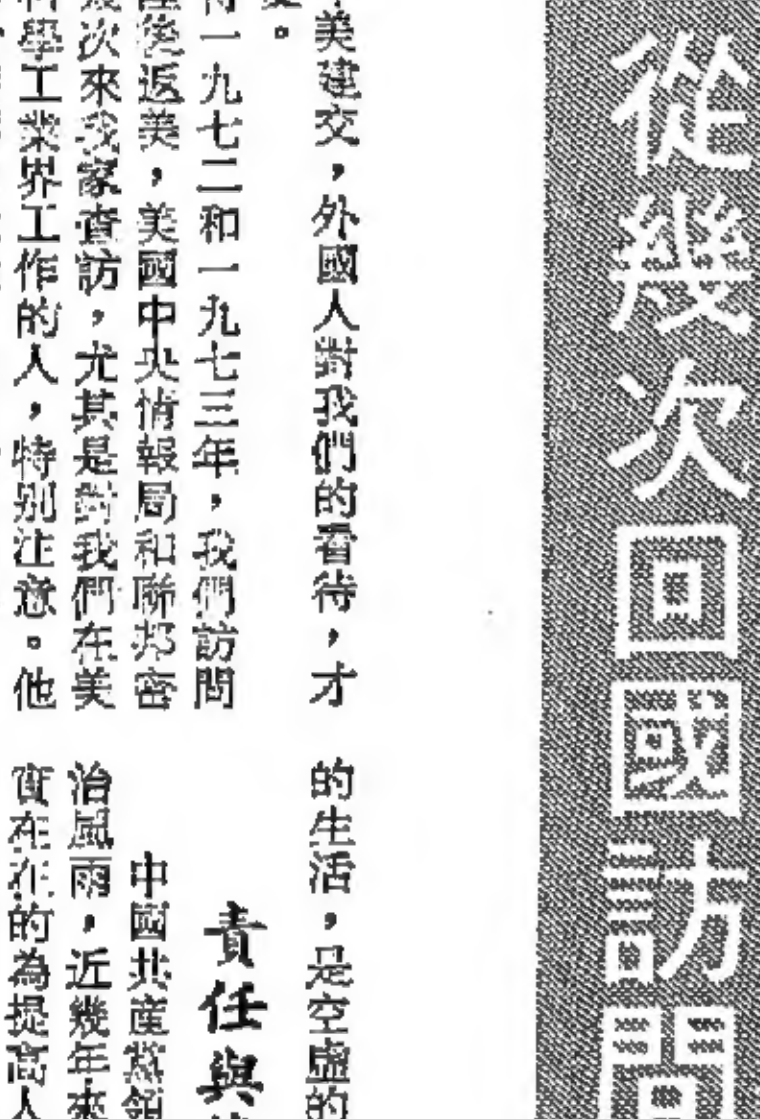 從幾次回國訪問
美建交，外國人對我們的看待，才
。
一九七二和一九七三年，我們訪問
後返美，美國中央情報局和聯邦密
次來我家查訪，尤其是對我們在美
科學工業界工作的人，特别注意。他
的生活，是空虛的
責任與
中國共產黨領
治風雨，近幾年來
實在在的為提高人